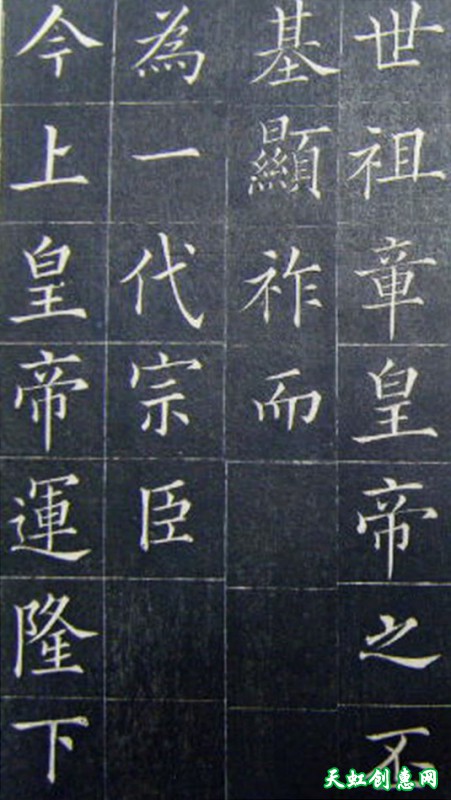 世祖章皇帝之不
基顯祚而
為一代宗臣
今上皇帝運隆下
天虹创惠网